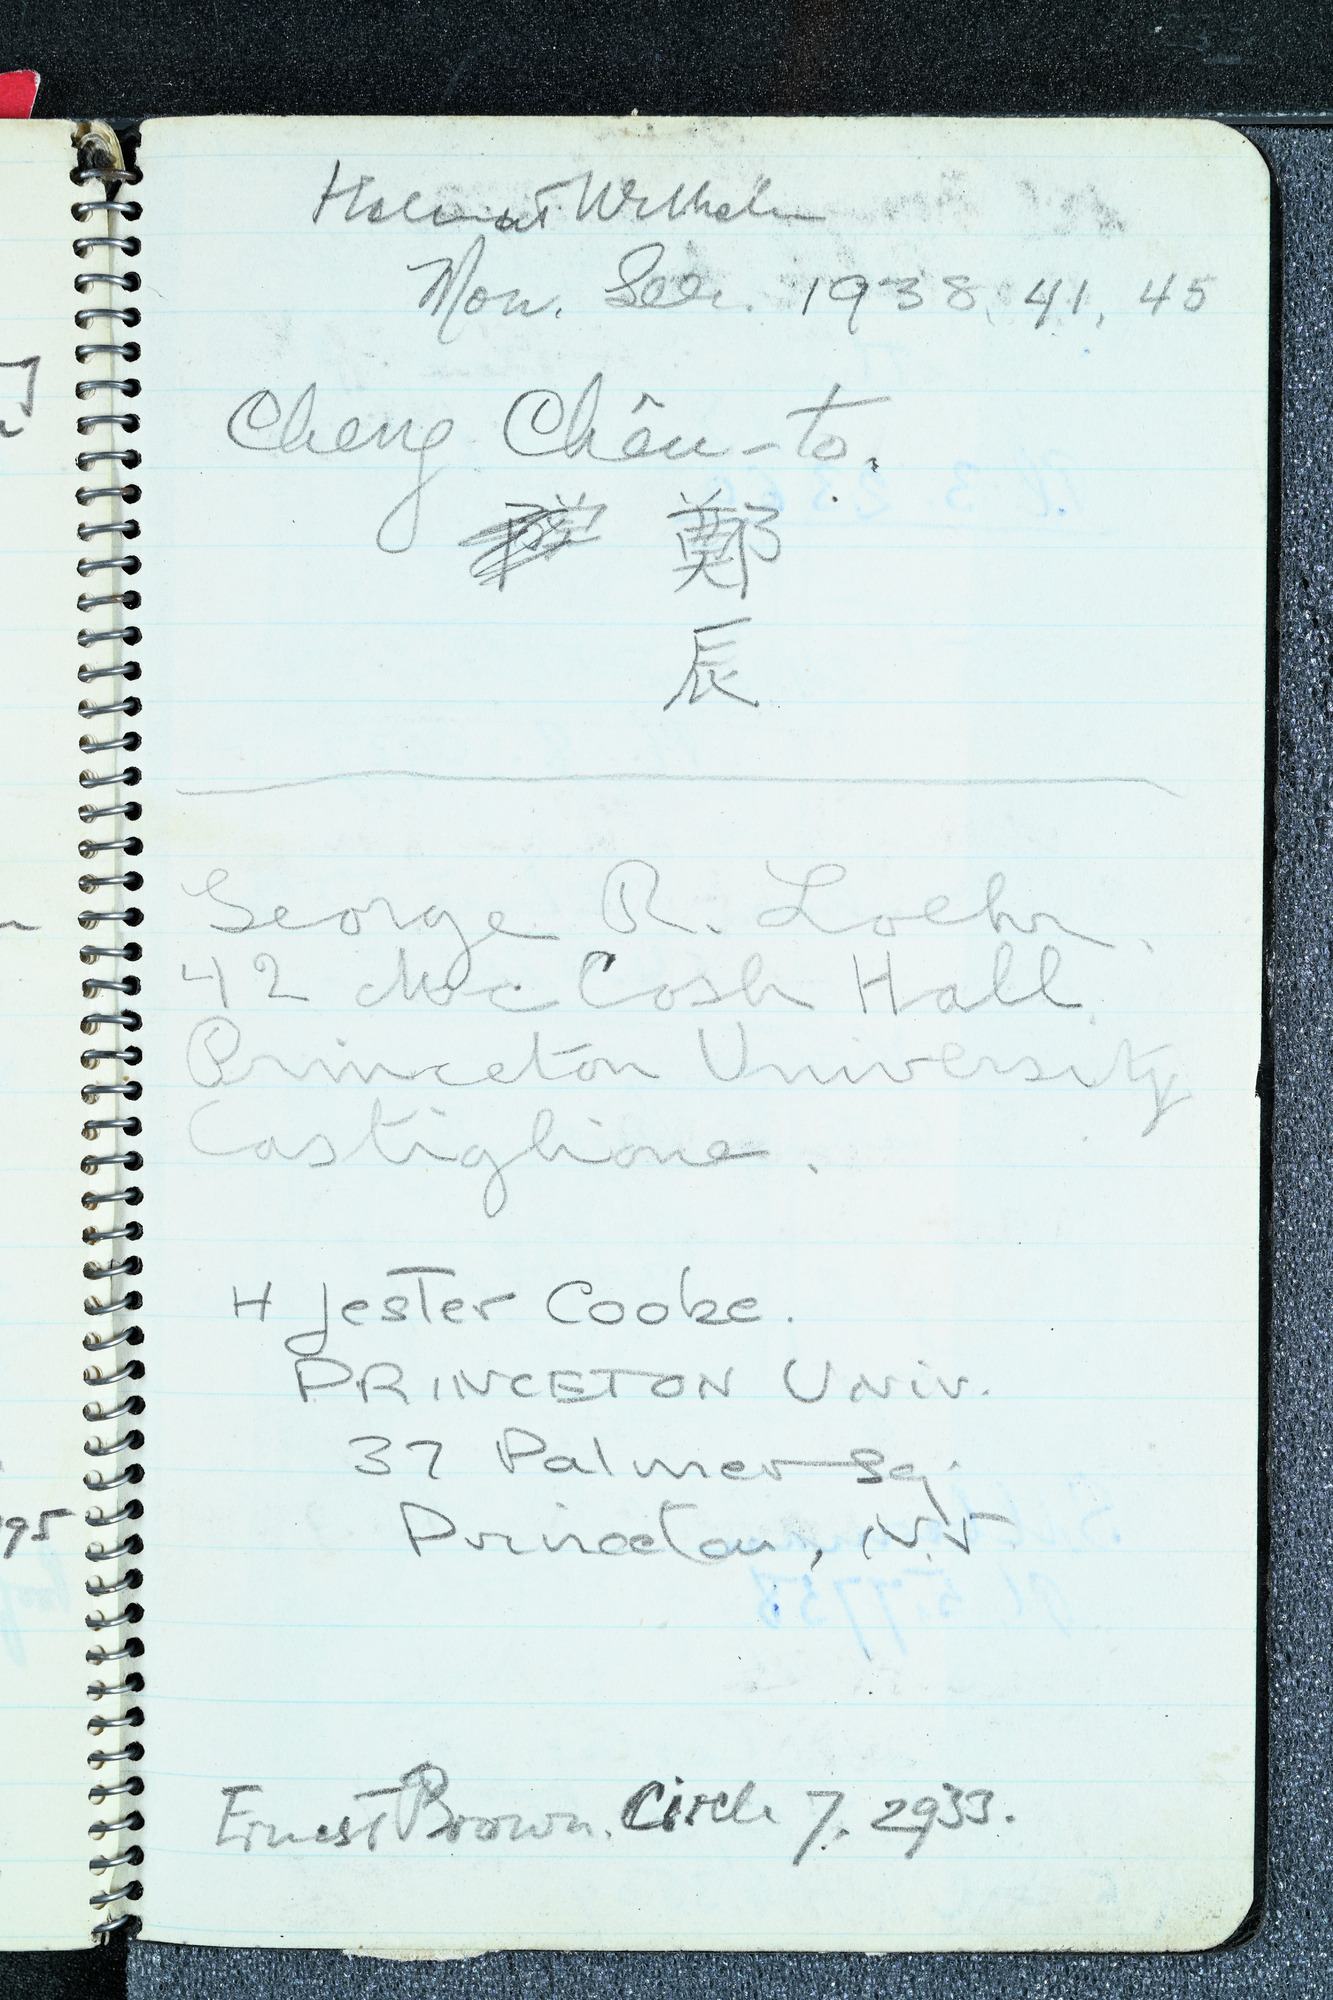 Helmut Wilhelm
Mon. Ser. 1938, 41, 45
Cheng Chên-to.
鄭
辰
George R. Loehr.
42 McCosh Hall
Princeton University
Castiglione.
H Lester Cooke.
PRINCETON Univ.
37 Palmer Sq.
Princeton, N.J
Ernest Brown. Circle 7, 2933.